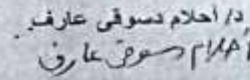 د/ أحلام دسوقى عارف.
أحلام دسوقى عارف